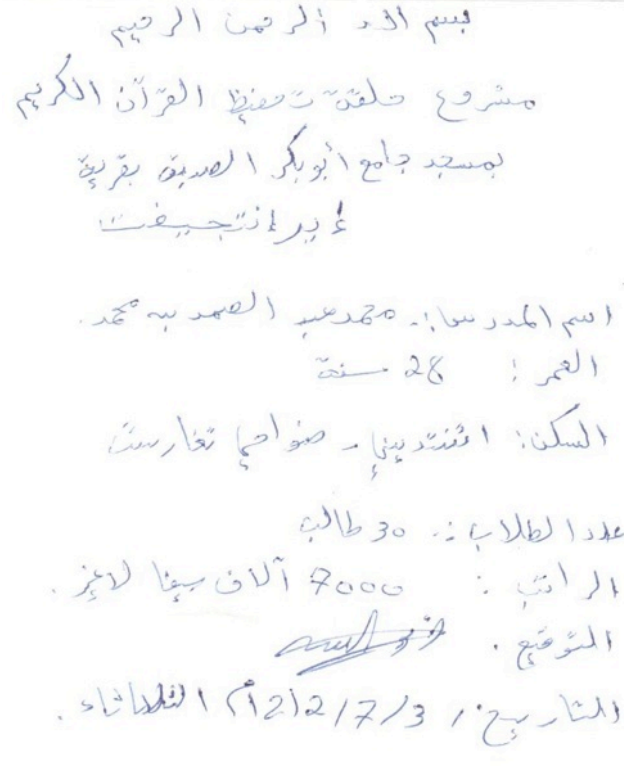 بسم الله الرحمن الرحيم
مشروع حلقة تحفيظ القرآن الكريم
بمسجد جامع أبوبكر الصديق بقرية
اسم المدرس: محمد عبد الصمد بن محمد.
العمر: 28 سنة
السكن: - ضواحي تغارست
عدد الطلاب: 30 طالب
الراتب: 7000 آلاف سيفا لاغير.
التوقيع.
التاريخ: 3/7/212م الثلاثاء.